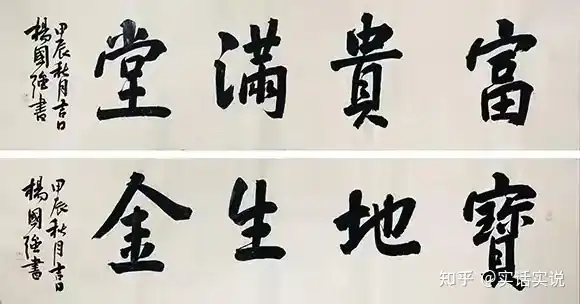 富貴滿堂
甲辰秋月吉日
楊國強書
寶地生金
甲辰秋月吉日
楊國強書
知乎 @实话实说